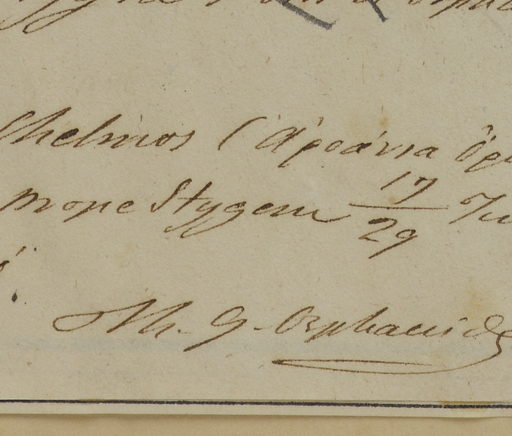 Chelmos (Ἀροάνια ὄρη
prope Stygem 17/29 Ju
Th. G. Orphanides